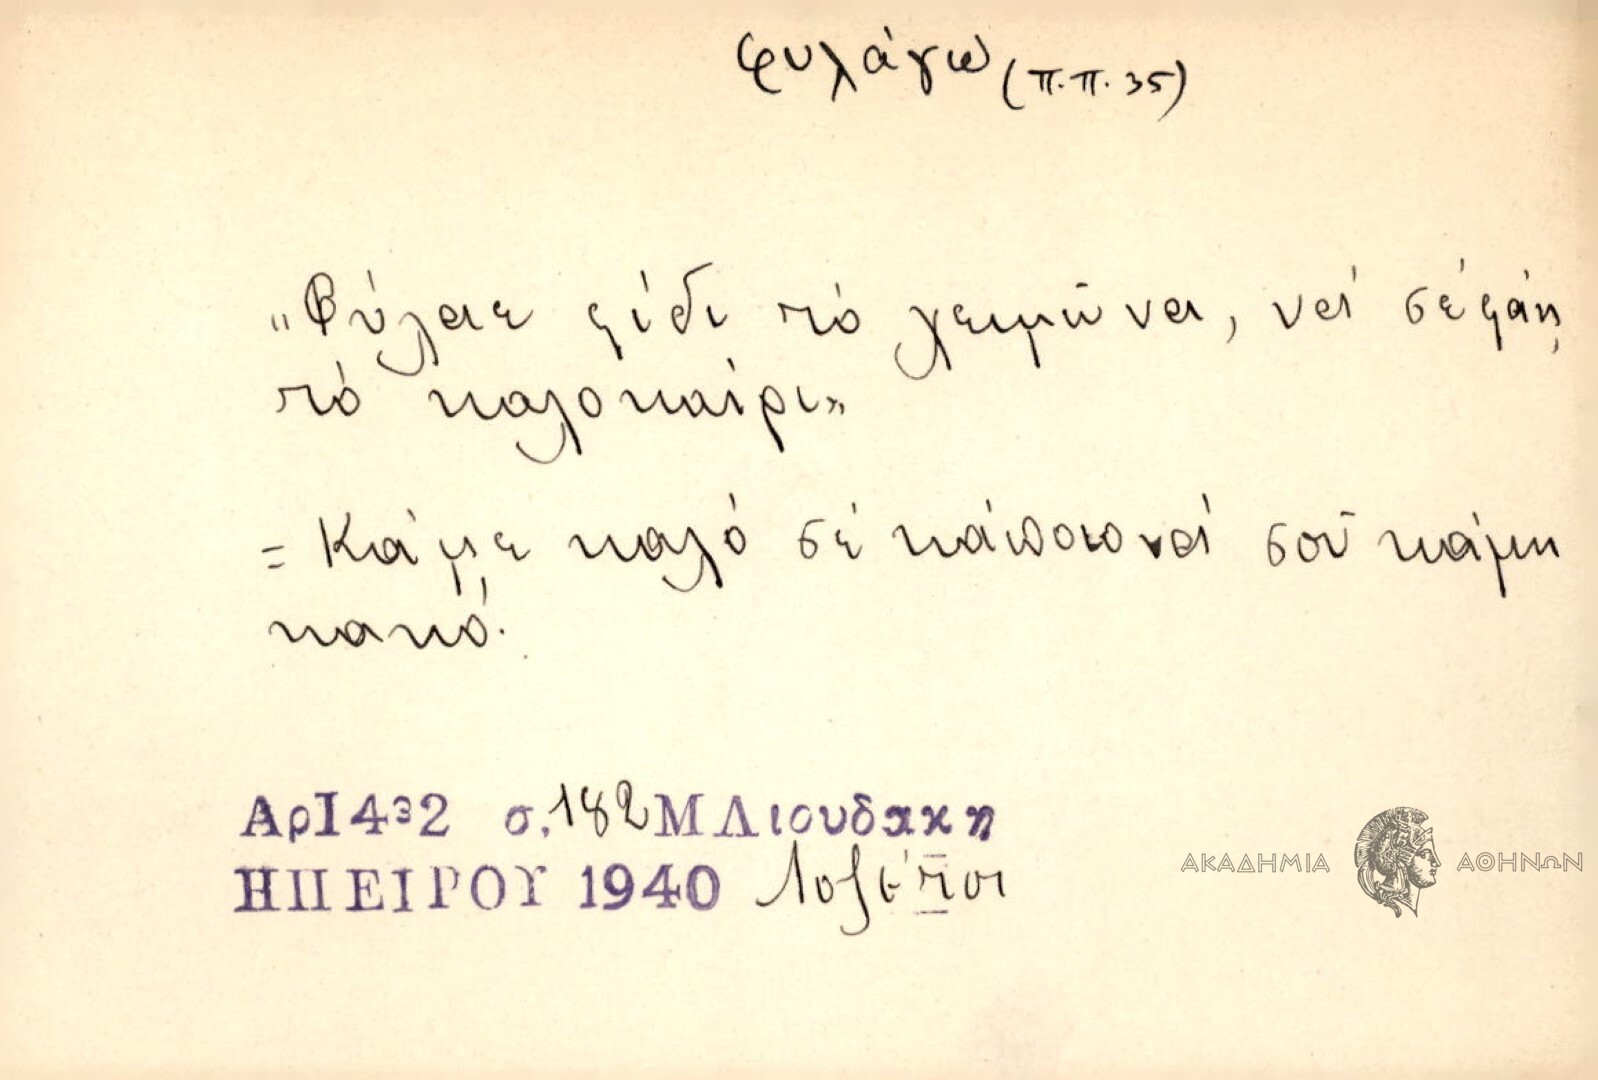 φυλάγω (π.π. 35)
"Φύλαε φίδι τό χειμῶνα, νά σέ φάῃ
τό καλοκαίρι"
= Κάμε καλό σέ κάποιο νά σοῦ κάμῃ
κακό.
Αρ 1432 σ. 182 Μ Λιουδακη
ΗΠΕΙΡΟΥ 1940
ΑΚΑΔΗΜΙΑ ΑΘΗΝΩΝ